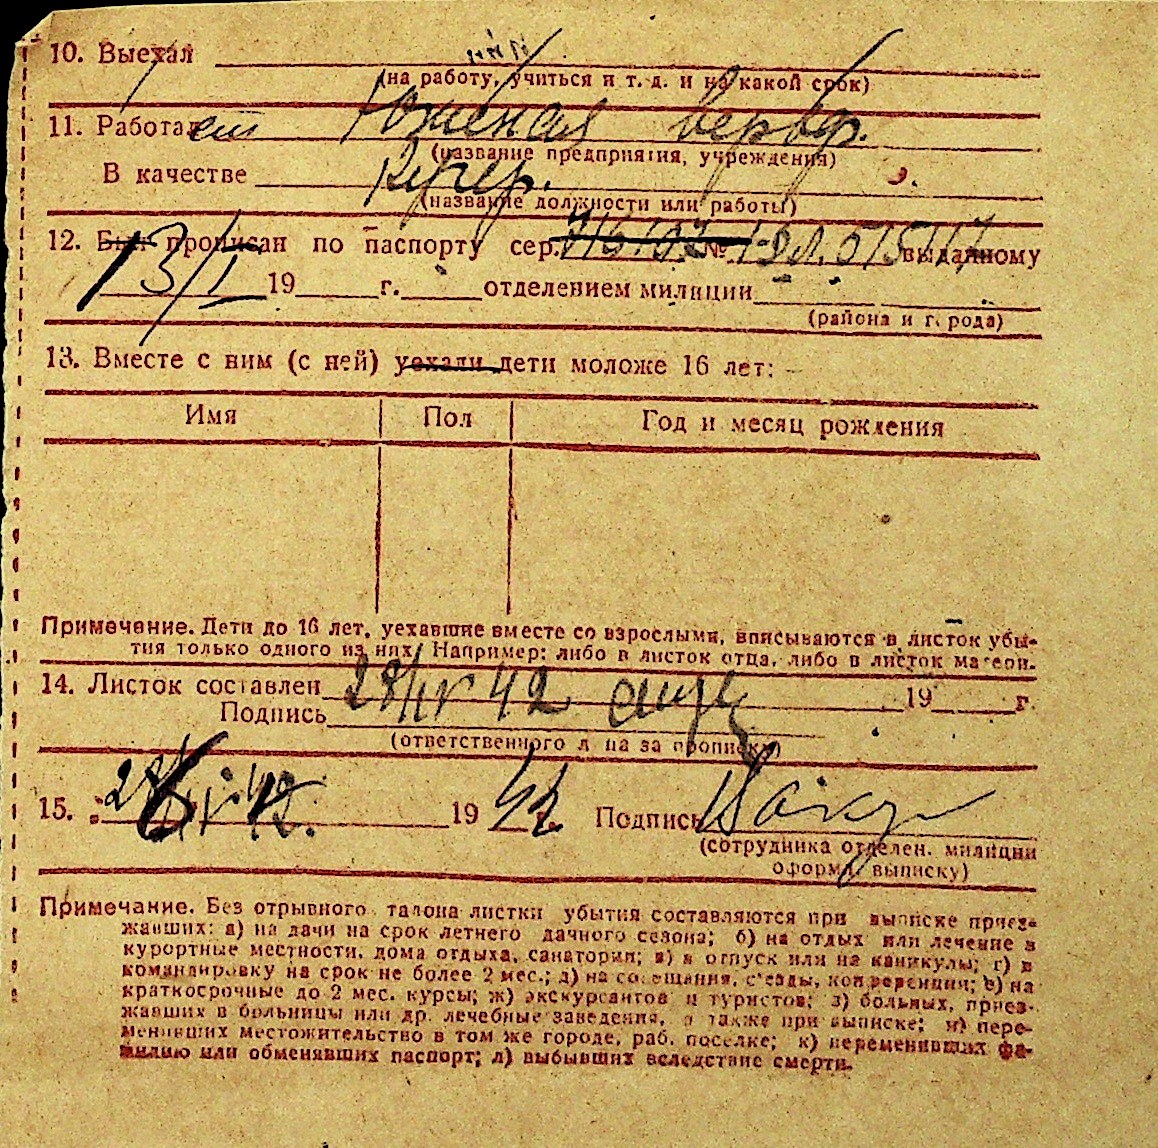 10. Выехал
(на работу, учиться и т. д. и на какой срок)
11. Работает Южная верфь.
(название предприятия, учреждения)
В качестве
(название должности или работы)
12. Был прописан по паспорту сер. № выданному
13/I 19 г. отделением милиции
(района и города)
13. Вместе с ним (с ней) уехали дети моложе 16 лет: –
Имя Пол Год и месяц рождения
Примечание. Дети до 16 лет, уехавшие вместе со взрослыми, вписываются в листок убы-
тия только одного из них. Например: либо в листок отца, либо в листок матери.
14. Листок составлен 28/IV 42 19 г.
Подпись
(ответственного л на за прописку)
15. 28/IV 42. 19 42 Подпись
(сотрудника отделен. милиции
оформл. выписку)
Примечание. Без отрывного талона листки убытия составляются при выписке приез-
жавших: а) на дачи на срок летнего дачного сезона; б) на отдых или лечение в
курортные местности, дома отдыха, санатории; в) в отпуск или на каникулы; г) в
командировку на срок не более 2 мес.; д) на совещания, съезды, конференции; е) на
краткосрочные до 2 мес. курсы; ж) экскурсантов и туристов; з) больных, приез-
жавших в больницы или др. лечебные заведения, а также при выписке; и) пере-
менивших местожительство в том же городе, раб. поселке; к) переменивших фа-
милию или обменявших паспорт; л) выбывших вследствие смерти.